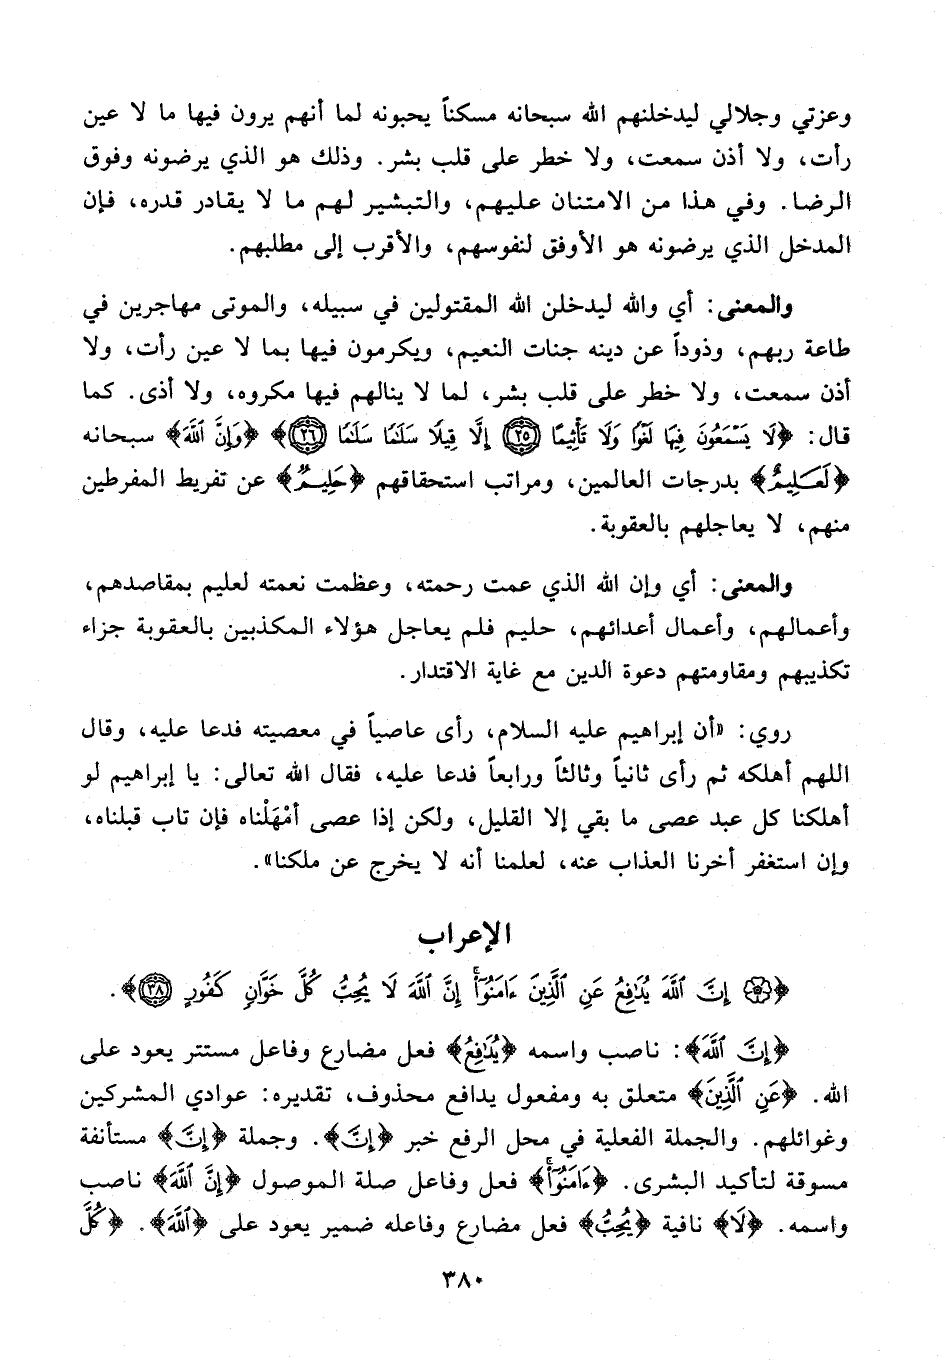 وعزتي وجلالي ليدخلنهم الله سبحانه مسكناً يحبونه لما أنهم يرون فيها ما لا عين
رأت، ولا أذن سمعت، ولا خطر على قلب بشر. وذلك هو الذي يرضونه وفوق
الرضا. وفي هذا من الامتنان عليهم، والتبشير لهم ما لا يقادر قدره، فإن
المدخل الذي يرضونه هو الأوفق لنفوسهم، والأقرب إلى مطلبهم.
والمعنى: أي والله ليدخلن الله المقتولين في سبيله، والموتى مهاجرين في
طاعة ربهم، وذوداً عن دينه جنات النعيم، ويكرمون فيها بما لا عين رأت، ولا
أذن سمعت، ولا خطر على قلب بشر، لما لا ينالهم فيها مكروه، ولا أذى. كما
قال: ﴿لَا يَسْمَعُونَ فِيهَا لَغْوًا وَلَا تَأْثِيمًا ۝٢٥ إِلَّا قِيلًا سَلَٰمًا سَلَٰمًا ۝٢٦﴾ ﴿وَإِنَّ ٱللَّهَ﴾ سبحانه
﴿لَعَلِيمٌ﴾ بدرجات العالمين، ومراتب استحقاقهم ﴿حَلِيمٌ﴾ عن تفريط المفرطين
منهم، لا يعاجلهم بالعقوبة.
والمعنى: أي وإن الله الذي عمت رحمته، وعظمت نعمته لعليم بمقاصدهم،
وأعمالهم، وأعمال أعدائهم، حليم فلم يعاجل هؤلاء المكذبين بالعقوبة جزاء
تكذيبهم ومقاومتهم دعوة الدين مع غاية الاقتدار.
روي: «أن إبراهيم عليه السلام، رأى عاصياً في معصيته فدعا عليه، وقال
اللهم أهلكه ثم رأى ثانياً وثالثاً ورابعاً فدعا عليه، فقال الله تعالى: يا إبراهيم لو
أهلكنا كل عبد عصى ما بقي إلا القليل، ولكن إذا عصى أمْهَلْناه فإن تاب قبلناه،
وإن استغفر أخرنا العذاب عنه، لعلمنا أنه لا يخرج عن ملكنا».
الإعراب
﴿۞ إِنَّ ٱللَّهَ يُدَٰفِعُ عَنِ ٱلَّذِينَ ءَامَنُوٓا۟ إِنَّ ٱللَّهَ لَا يُحِبُّ كُلَّ خَوَّانٍ كَفُورٍ ۝٣٨﴾.
﴿إِنَّ ٱللَّهَ﴾: ناصب واسمه ﴿يُدَٰفِعُ﴾ فعل مضارع وفاعل مستتر يعود على
الله. ﴿عَنِ ٱلَّذِينَ﴾ متعلق به ومفعول يدافع محذوف، تقديره: عوادي المشركين
وغوائلهم. والجملة الفعلية في محل الرفع خبر ﴿إِنَّ﴾. وجملة ﴿إِنَّ﴾ مستأنفة
مسوقة لتأكيد البشرى. ﴿ءَامَنُوٓا۟﴾ فعل وفاعل صلة الموصول ﴿إِنَّ ٱللَّهَ﴾ ناصب
واسمه. ﴿لَا﴾ نافية ﴿يُحِبُّ﴾ فعل مضارع وفاعله ضمير يعود على ﴿ٱللَّهَ﴾. ﴿كُلَّ
٣٨٠